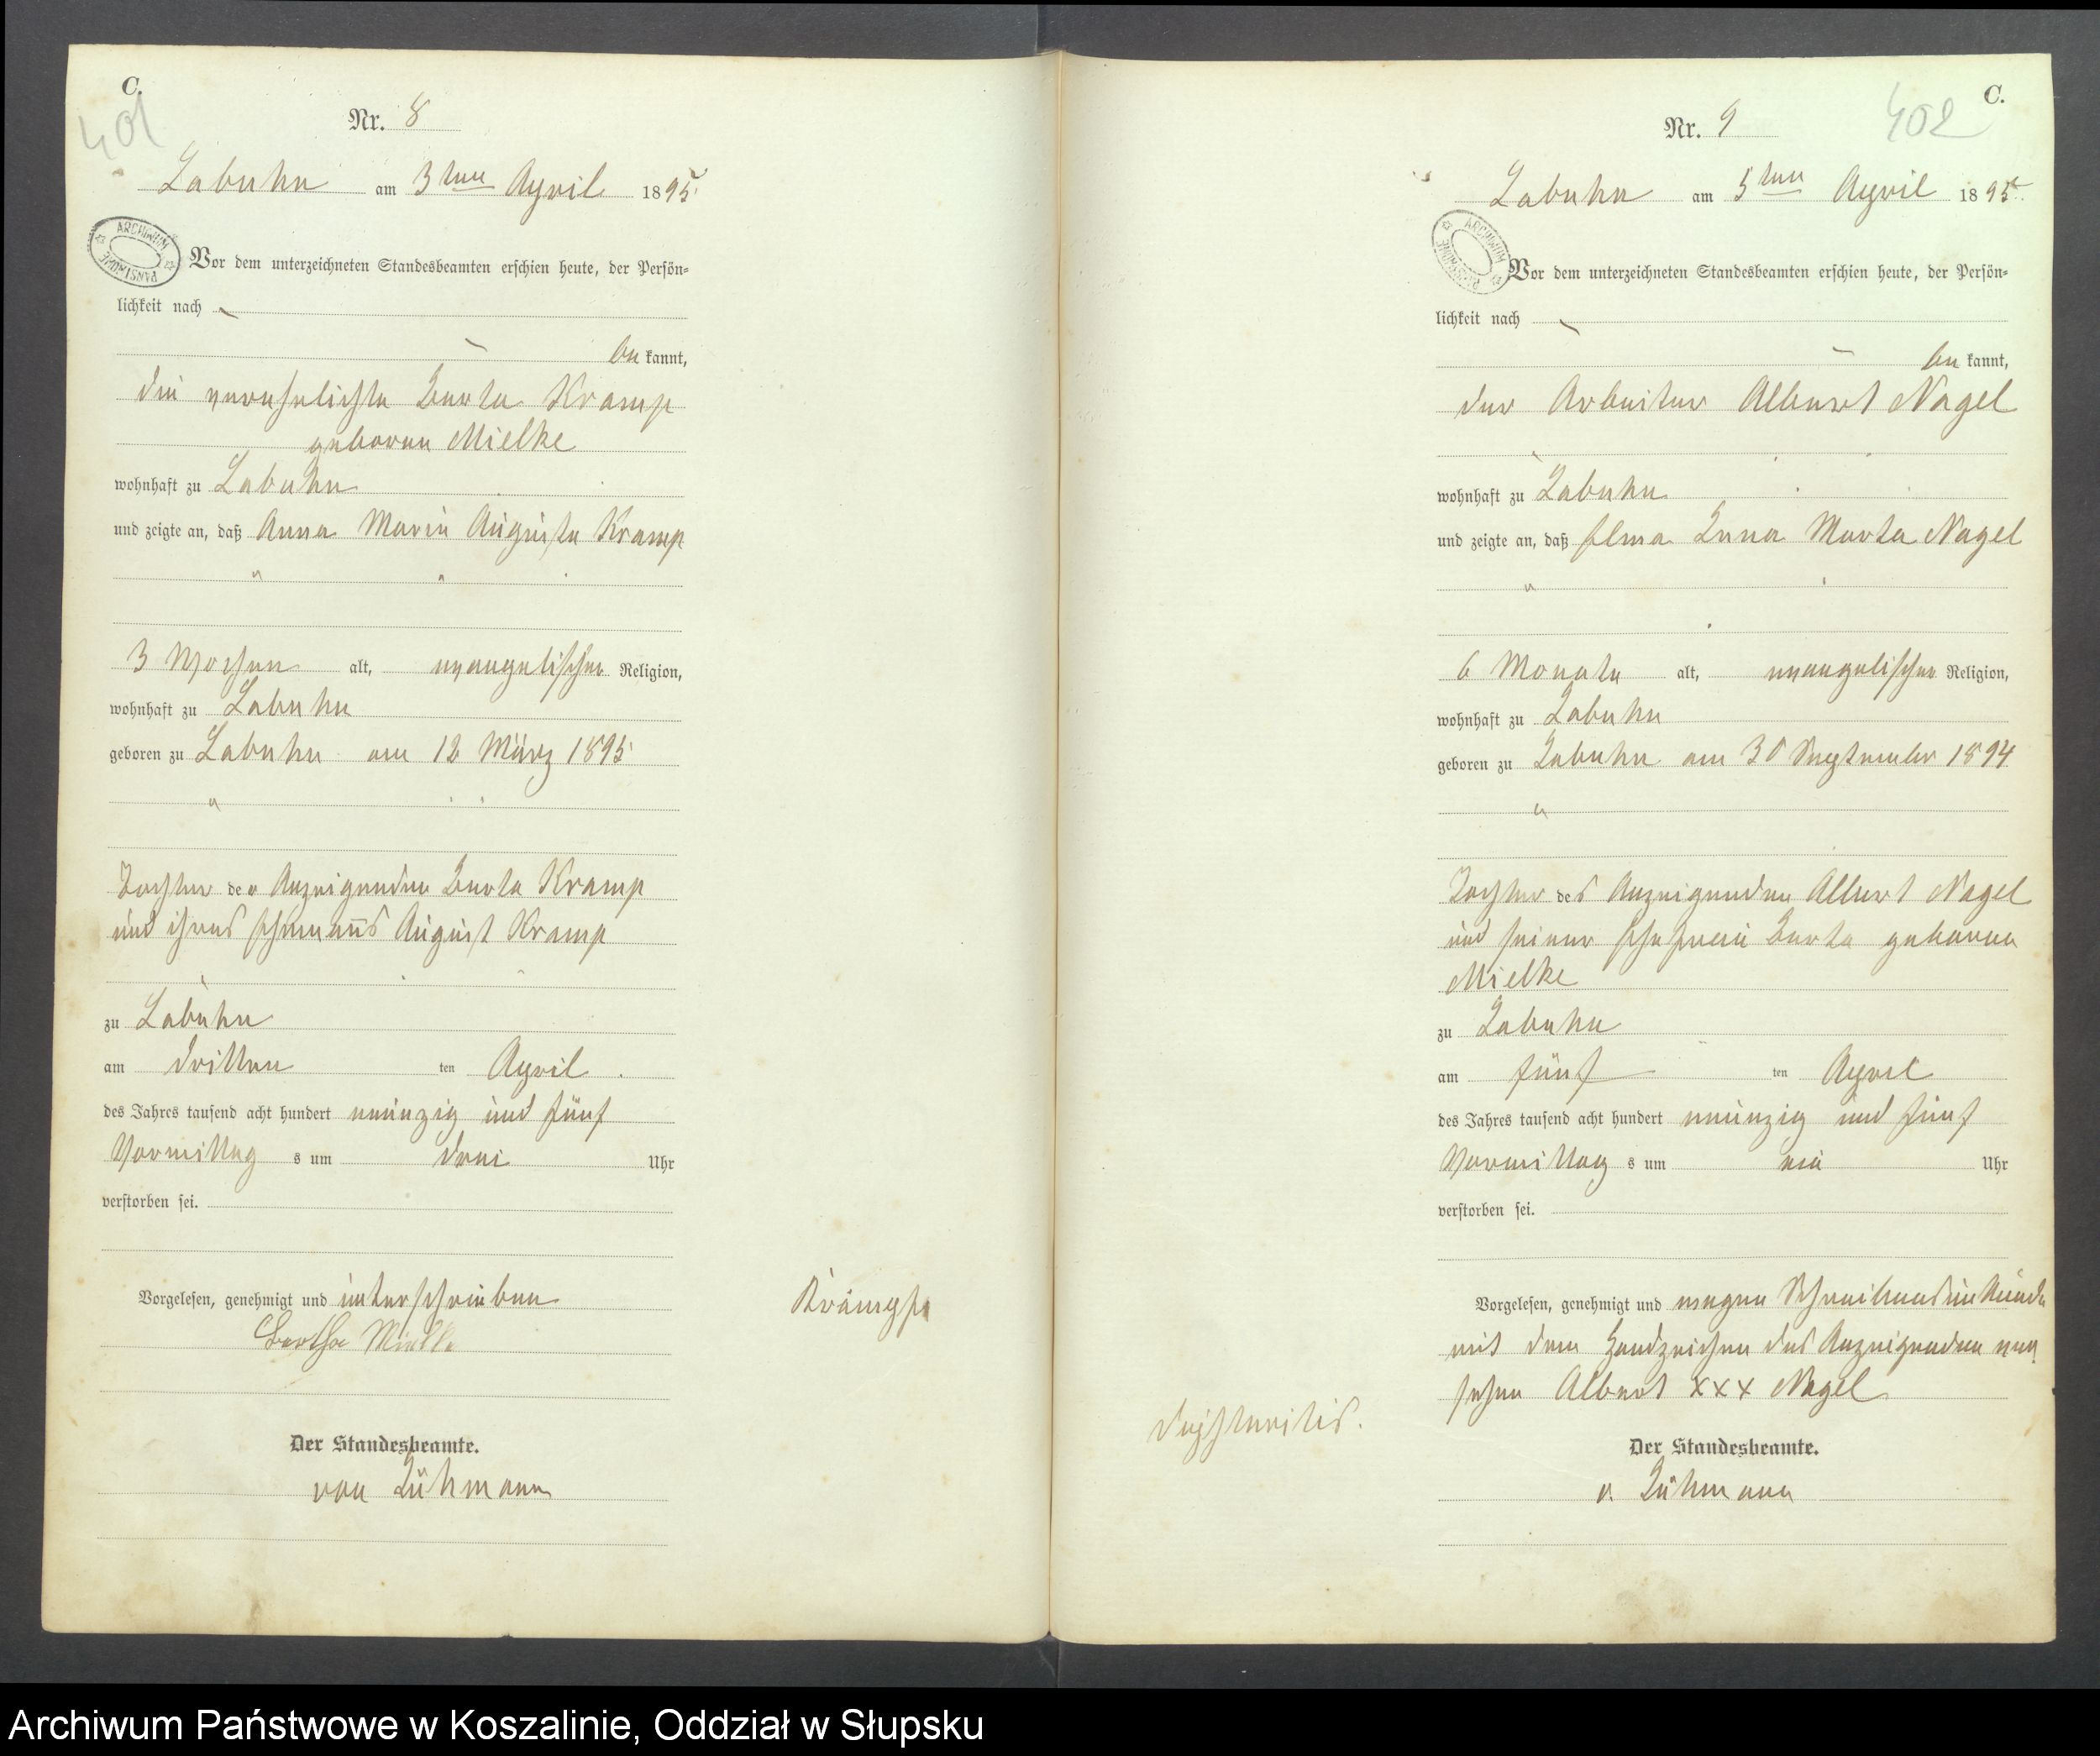 C.
401
Nr. 8
Labuhn am 3ten April 1895.
ARCHIWUM PAŃSTWOWE
Vor dem unterzeichneten Standesbeamten erschien heute, der Persön-
lichkeit nach
be kannt,
die verehelichte Berta Kramp
geborene Mielke
wohnhaft zu Labuhn
und zeigte an, daß Anna Marie Auguste Kramp
3 Wochen alt, evangelischer Religion,
wohnhaft zu Labuhn
geboren zu Labuhn am 12 März 1895
Tochter der Anzeigenden Berta Kramp
und ihres Ehemanns August Kramp
zu Labuhn
am dritten ten April
des Jahres tausend acht hundert neunzig und fünf
Vormittag s um drei Uhr
verstorben sei.
Vorgelesen, genehmigt und unterschrieben
Bertha Mielke
Krämpfe
Der Standesbeamte.
von Lühmann
C.
402
Nr. 9
Labuhn am 5ten April 1895.
ARCHIWUM PAŃSTWOWE
Vor dem unterzeichneten Standesbeamten erschien heute, der Persön-
lichkeit nach
be kannt,
der Arbeiter Albert Nagel
wohnhaft zu Labuhn
und zeigte an, daß Elma Anna Marta Nagel
6 Monate alt, evangelischer Religion,
wohnhaft zu Labuhn
geboren zu Labuhn am 30 September 1894
Tochter des Anzeigenden Albert Nagel
und seiner Ehefrau Berta geborene
Mielke
zu Labuhn
am fünf ten April
des Jahres tausend acht hundert neunzig und fünf
Vormittag s um Uhr
verstorben sei.
Vorgelesen, genehmigt und wegen Schreibensunkunde
mit dem Handzeichen des Anzeigenden ver
sehen Albert xxx Nagel
Diphteritis.
Der Standesbeamte.
v. Lühmann
Archiwum Państwowe w Koszalinie, Oddział w Słupsku